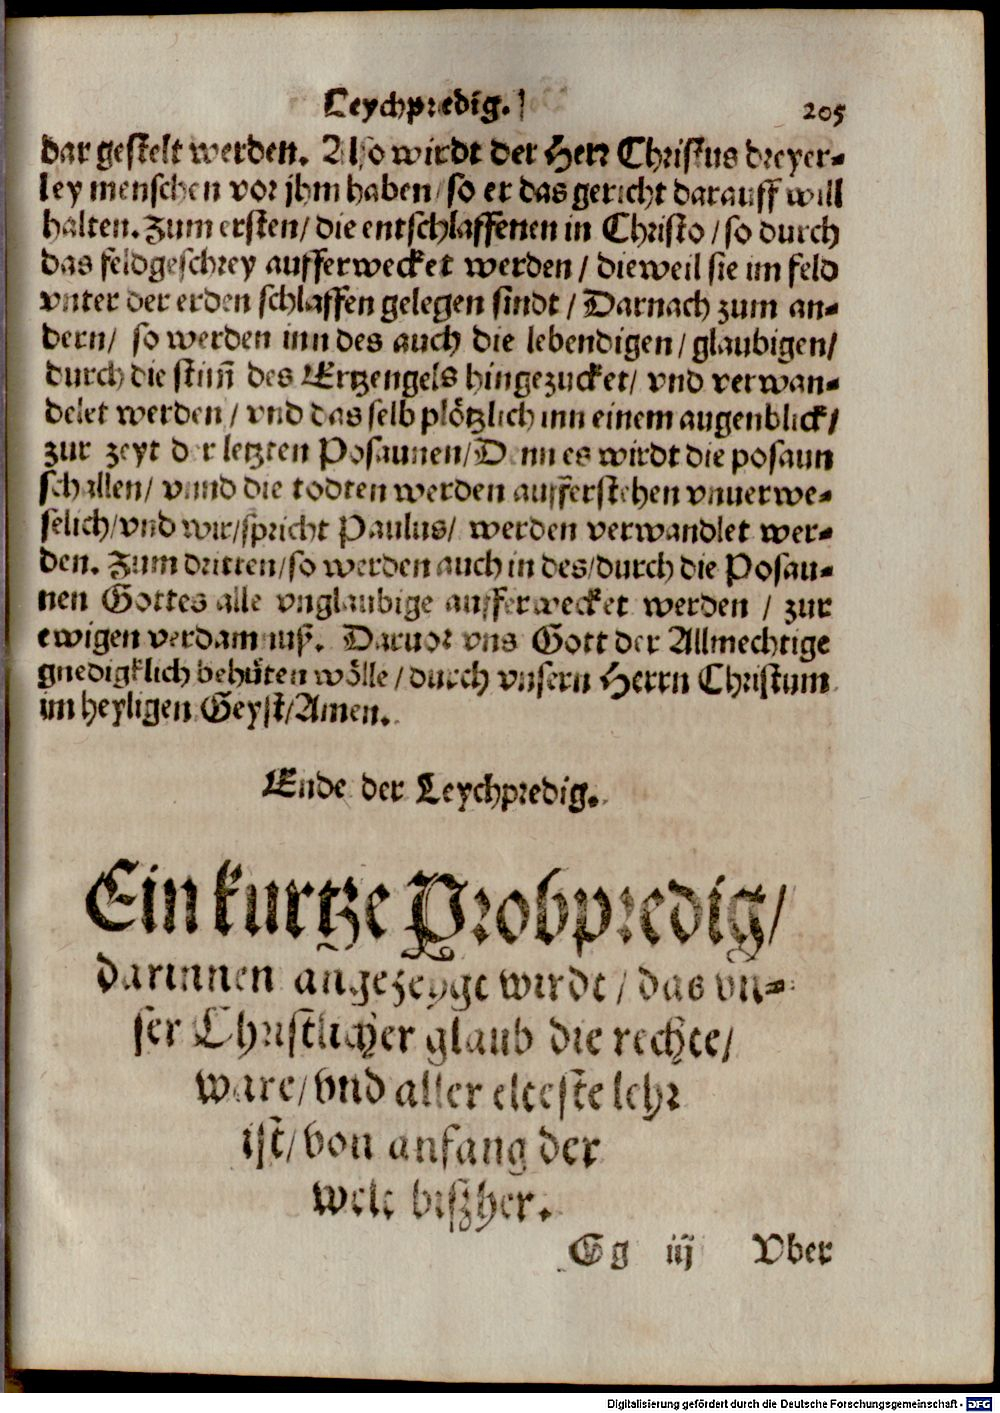 Leychpredig. 205
dar gestelt werden. Also wirdt der Herr Christus dreyer-
ley menschen vor jhm haben/ so er das gericht darauff will
halten. Zum ersten/ die entschlaffenen in Christo/ so durch
das feldgeschrey aufferwecket werden/ dieweil sie im feld
vnter der erden schlaffen gelegen sindt/ Darnach zum an-
dern/ so werden inn des auch die lebendigen/ glaubigen/
durch die stim̃ des Ertzengels hingezucket/ vnd verwan-
delet werden/ vnd das selb plötzlich inn einem augenblick/
zur zeyt der letzten Posaunen/ Denn es wirdt die posaun
schallen/ vnnd die todten werden aufferstehen vnuerwe-
selich/ vnd wir/ spricht Paulus/ werden verwandlet wer-
den. Zum dritten/ so werden auch in des/ durch die Posau-
nen Gottes alle vnglaubige aufferwecket werden/ zur
ewigen verdamnuß. Daruor vns Gott der Allmechtige
gnedigklich behüten wölle/ durch vnsern Herrn Christum
im heyligen Geyst/ Amen.
Ende der Leychpredig.
Ein kurtze Probpredig/
darinnen angezeygt wirdt/ das vn-
ser Christlicher glaub die rechte/
ware/ vnd aller elteste lehr
ist/ von anfang der
welt bißher.
Gg iij Vber
Digitalisierung gefördert durch die Deutsche Forschungsgemeinschaft - DFG